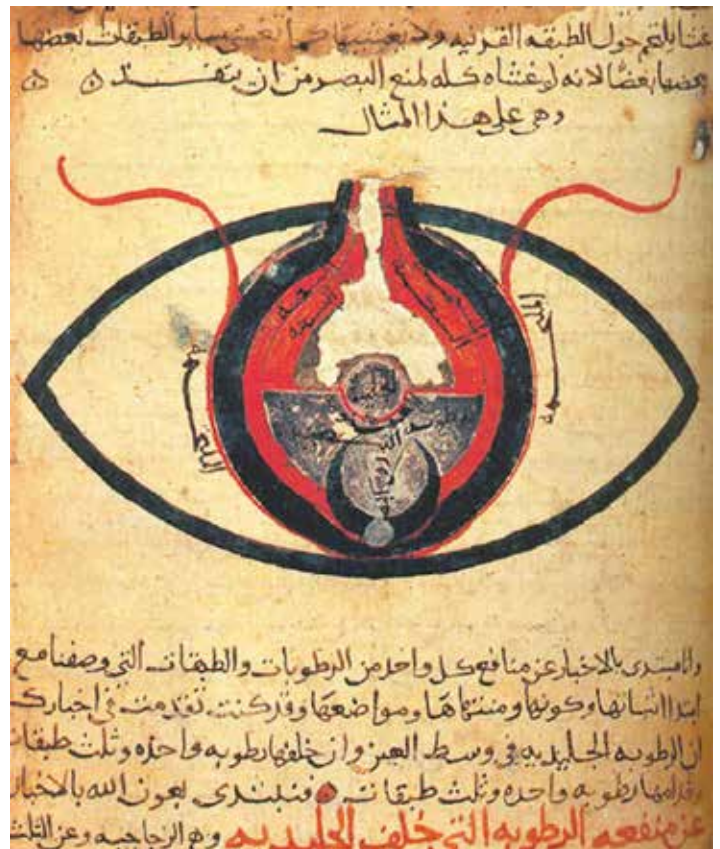 غشا يلتحم حول الطبقه القرنيه ولا يغشيها كما تغشى ساير الطبقات بعضها
بعضها بعضًا لانه لو غشاه كله لمنع البصر من ان ينفـــذ ه ه
وهى على هذا المثال
الملتحمه
الملتحمه
الشبكيه
الجليديه
وانا مبتدى بالاخبار عن منافع كل واحد من الرطوبات والطبقات التى وصفنا مع
ابتدا اثباتها وكونها ومنتهاها ومواضعها وقد كنت تقدمت فى اخبارك
ان الرطوبه الجليديه فى وسط العين وان خلفها رطوبه واحده وثلث طبقات
وقدامها رطوبه واحده وثلث طبقات فنبتدى بعون الله بالاخبار
عن منفعه الرطوبه التى خلف الجليديه وهى الزجاجيه وعن الثلث